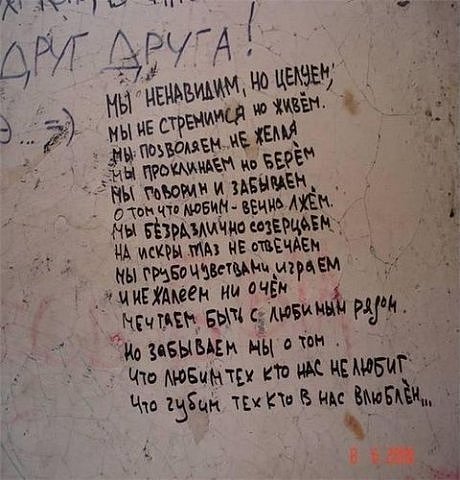 ДРУГ ДРУГА!
:)...=)
МЫ НЕНАВИДИМ, НО ЦЕЛУЕМ,
МЫ НЕ СТРЕМИМСЯ НО ЖИВЁМ.
МЫ ПОЗВОЛЯЕМ НЕ ЖЕЛАЯ
МЫ ПРОКЛИНАЕМ НО БЕРЁМ
МЫ ГОВОРИМ И ЗАБЫВАЕМ
О ТОМ ЧТО ЛЮБИМ - ВЕЧНО ЛЖЁМ.
МЫ БЕЗРАЗЛИЧНО СОЗЕРЦАЕМ
НА ИСКРЫ ГЛАЗ НЕ ОТВЕЧАЕМ
МЫ ГРУБО ЧУВСТВАМИ ИГРАЕМ
И НЕ ЖАЛЕЕМ НИ О ЧЁМ
МЕЧТАЕМ БЫТЬ С ЛЮБИМЫМ РЯДОМ
НО ЗАБЫВАЕМ МЫ О ТОМ
ЧТО ЛЮБИМ ТЕХ КТО НАС НЕ ЛЮБИТ
ЧТО ГУБИМ ТЕХ КТО В НАС ВЛЮБЛЁН...